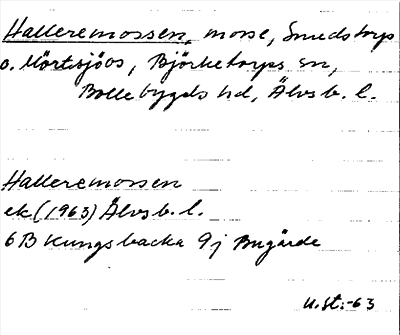 Halleremossen, mosse, Smedstorps
o. Mörtsjöos, Björketorps sn,
Bollebygds hd, Älvsb. l.
Halleremossen
ek (1963) Älvsb. l.
6B Kungsbacka 9j Bugärde
U.St.-63